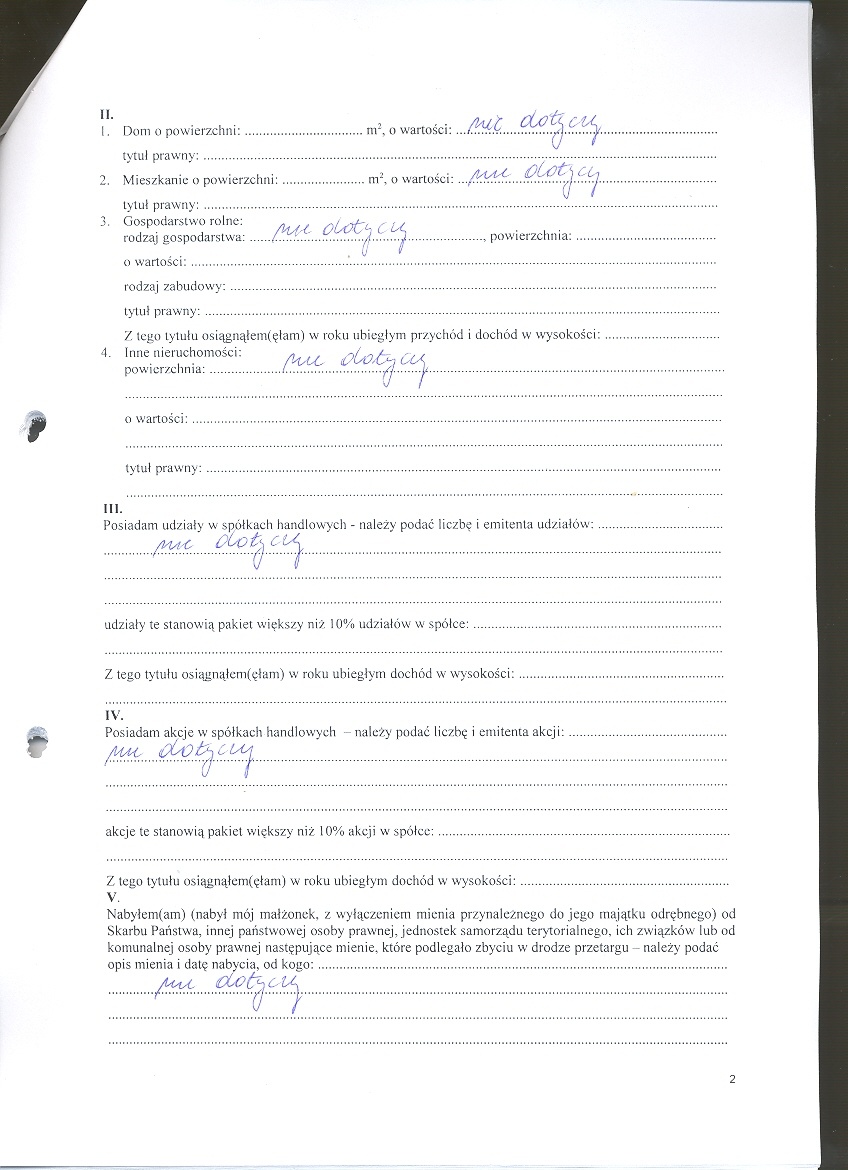 II.
1. Dom o powierzchni: .................................. m², o wartości: ...nie dotyczy..................................
tytuł prawny: ..................................................................................................................
2. Mieszkanie o powierzchni: ....................... m², o wartości: ...nie dotyczy..................................
tytuł prawny: ..................................................................................................................
3. Gospodarstwo rolne:
rodzaj gospodarstwa: .......nie dotyczy......................, powierzchnia: .......................................
o wartości: ......................................................................................................................
rodzaj zabudowy: .............................................................................................................
tytuł prawny: ..................................................................................................................
Z tego tytułu osiągnąłem(ęłam) w roku ubiegłym przychód i dochód w wysokości: ................................
4. Inne nieruchomości:
powierzchnia: ....................nie dotyczy..........................................................................
......................................................................................................................................
o wartości: ......................................................................................................................
......................................................................................................................................
tytuł prawny: ..................................................................................................................
......................................................................................................................................
III.
Posiadam udziały w spółkach handlowych - należy podać liczbę i emitenta udziałów: ..................................
..............nie dotyczy...................................................................................................
......................................................................................................................................
......................................................................................................................................
udziały te stanowią pakiet większy niż 10% udziałów w spółce: .....................................................................
......................................................................................................................................
Z tego tytułu osiągnąłem(ęłam) w roku ubiegłym dochód w wysokości: .........................................................
......................................................................................................................................
IV.
Posiadam akcje w spółkach handlowych – należy podać liczbę i emitenta akcji: ............................................
nie dotyczy...................................................................................................................
......................................................................................................................................
......................................................................................................................................
akcje te stanowią pakiet większy niż 10% akcji w spółce: ................................................................................
......................................................................................................................................
Z tego tytułu osiągnąłem(ęłam) w roku ubiegłym dochód w wysokości: .........................................................
V.
Nabyłem(am) (nabył mój małżonek, z wyłączeniem mienia przynależnego do jego majątku odrębnego) od
Skarbu Państwa, innej państwowej osoby prawnej, jednostek samorządu terytorialnego, ich związków lub od
komunalnej osoby prawnej następujące mienie, które podlegało zbyciu w drodze przetargu – należy podać
opis mienia i datę nabycia, od kogo: ..................................................................................................
..............nie dotyczy...................................................................................................
......................................................................................................................................
......................................................................................................................................
2